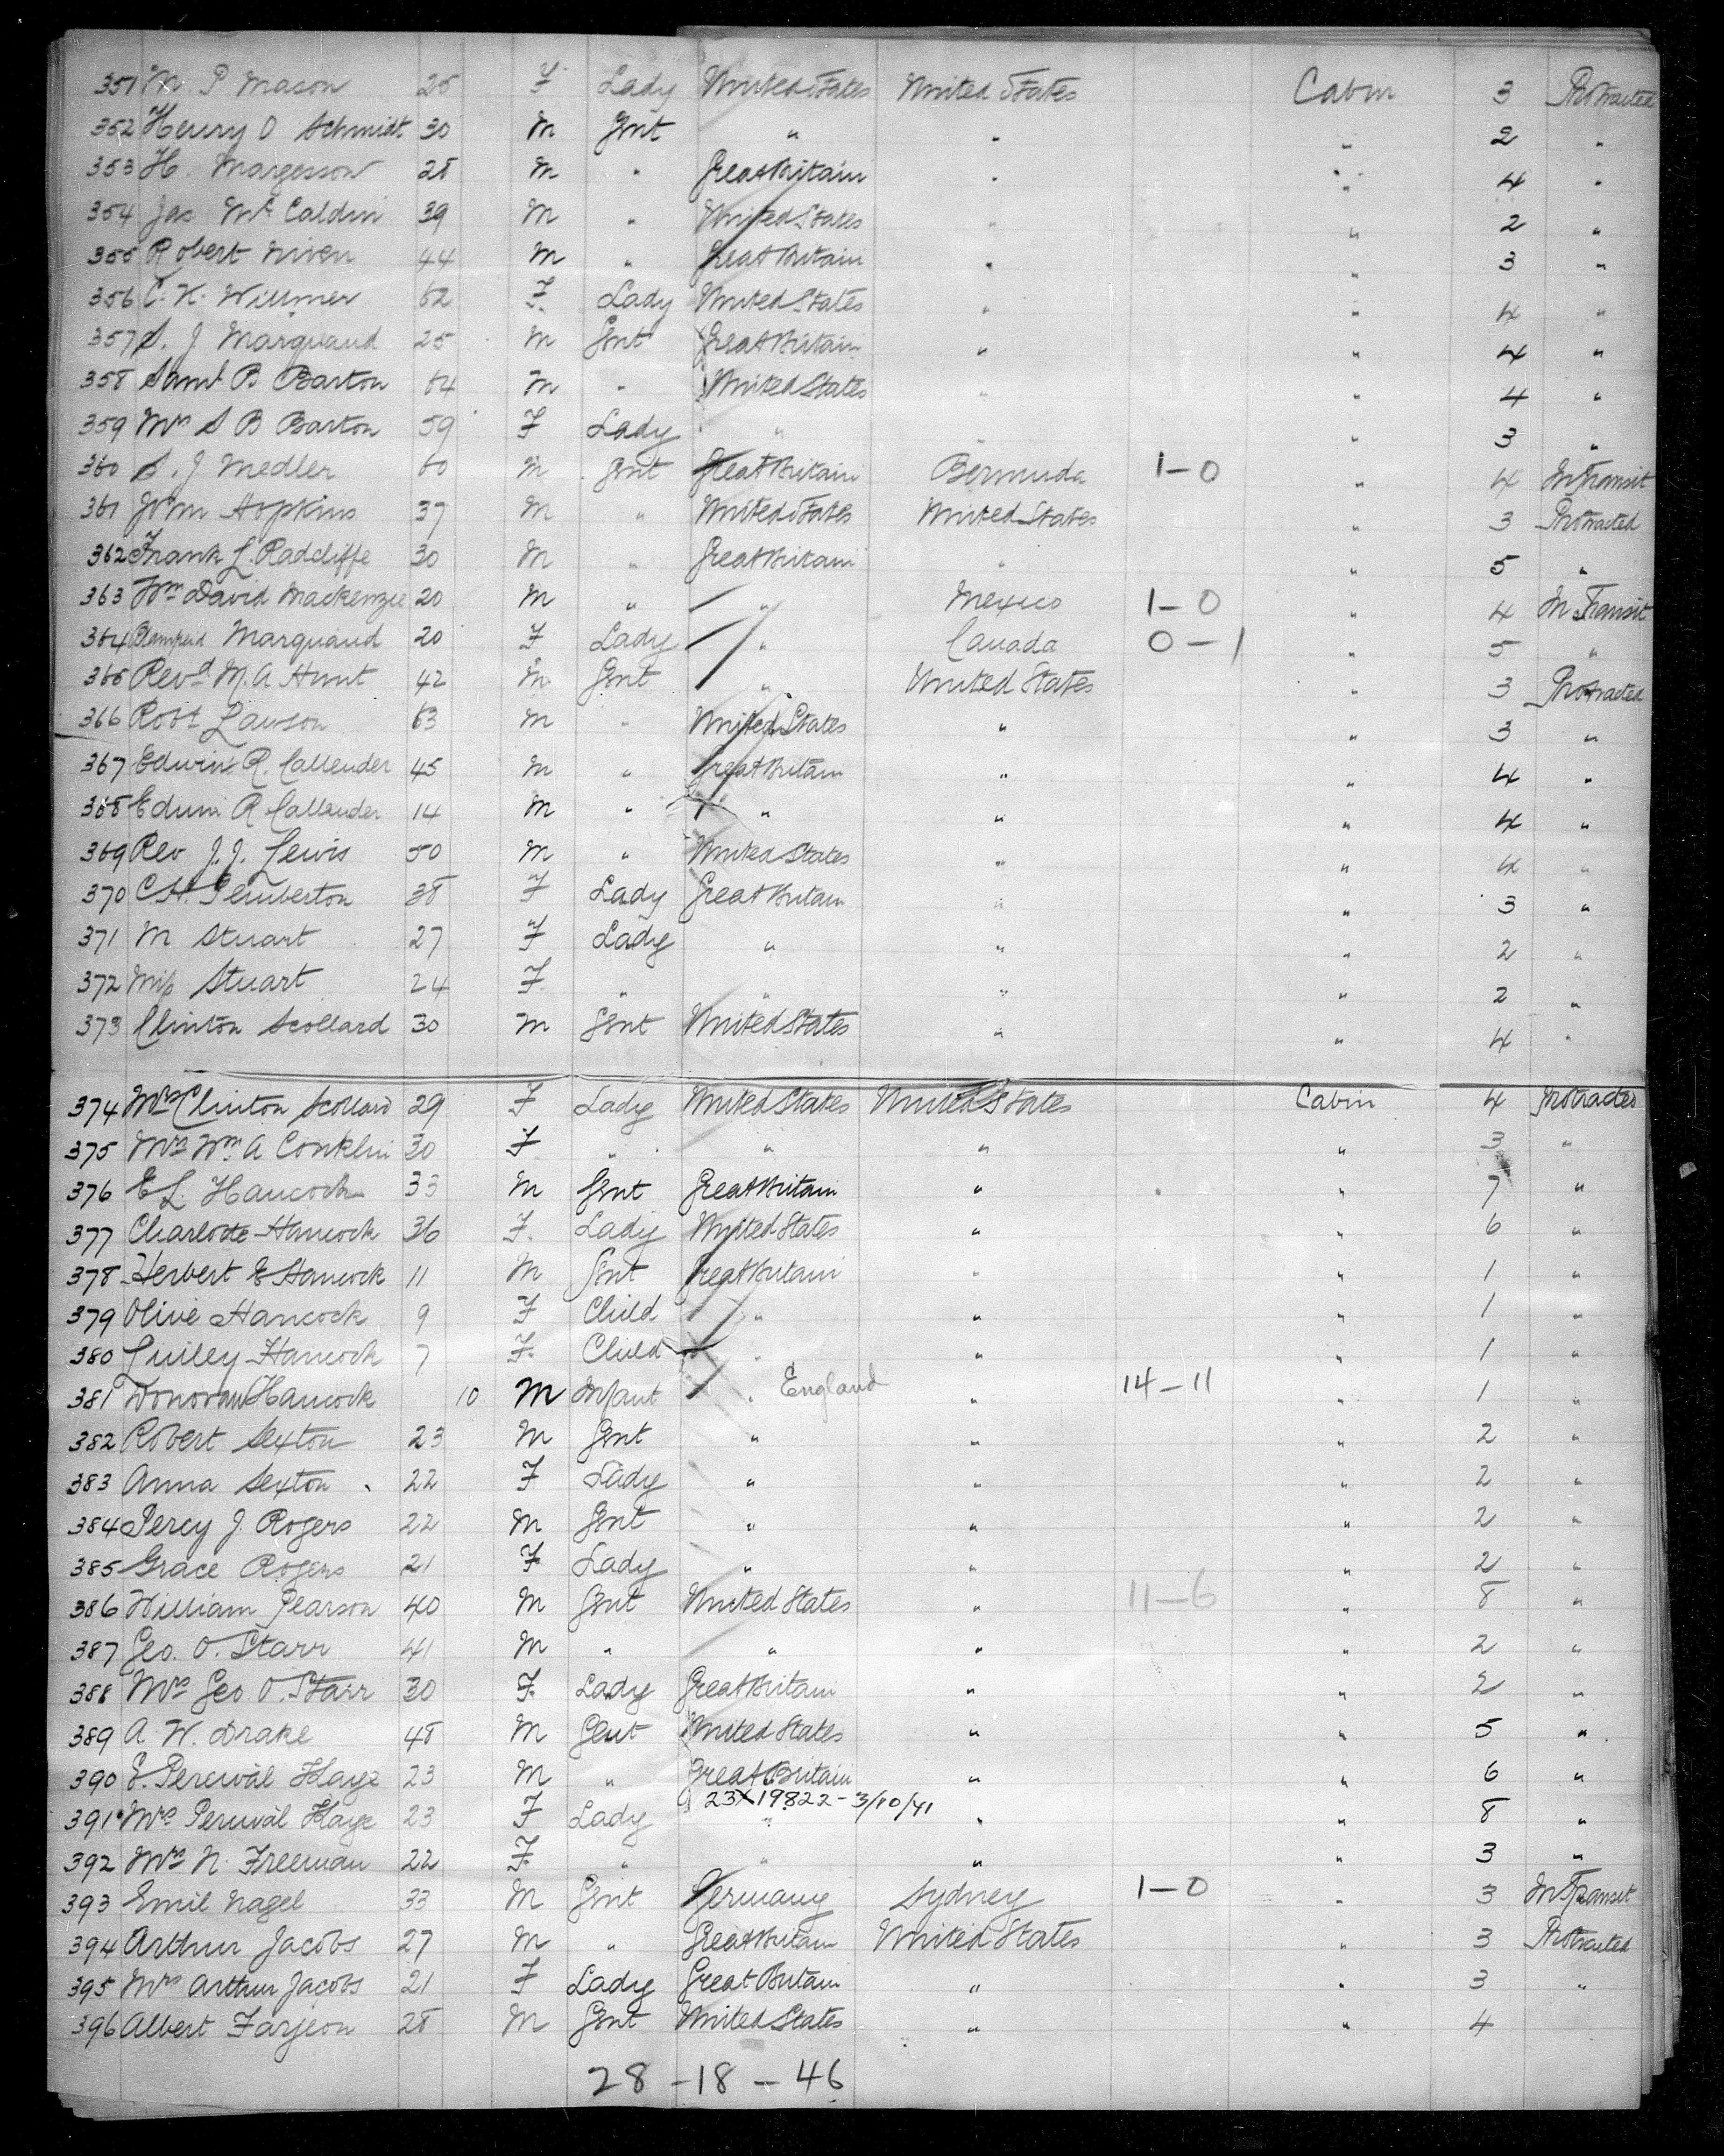 351 M. P Mason 25 F Lady United States United States Cabin 3 Protracted
352 Henry O Schmidt 30 M Gent " " " 2 "
353 H. Margesson 28 M " Great Britain " " 4 "
354 Jas Mc Caldin 39 M " United States " " 2 "
355 Robert Niven 44 M " Great Britain " " 3 "
356 C. K. Willmer 62 F. Lady United States " " 4 "
357 S. J Marquand 25 M Gent Great Britain " " 4 "
358 Saml B Barton 64 M " United States " " 4 "
359 Mrs S B Barton 59 F Lady " " " 3 "
360 S. J Medler 60 M Gent Great Britain Bermuda 1-0 " 4 In Transit
361 Hopkins 37 M " United States United States " 3 Protracted
362 Frank L. Radcliffe 30 M " Great Britain " " 5 "
363 Wm David Mackenzie 20 M " " Mexico 1-0 " 4 In Transit
364 Marquand 20 F Lady " Canada 0-1 " 5 "
365 Revd M. A Hunt 42 M Gent " United States " 3 Protracted
366 Robt Lawson 63 M " United States " " 3 "
367 Edwin R. Callender 45 M " Great Britain " " 4 "
368 Edwin R Callender 14 M " " " " 4 "
369 Rev J. J. Lewis 50 M " United States " " 4 "
370 C H. Pemberton 38 F Lady Great Britain " " 3 "
371 M Stuart 27 F Lady " " " 2 "
372 Miss Stuart 24 F " " " " 2 "
373 Clinton Scollard 30 M Gent United States " " 4 "
374 Mrs Clinton Scollard 29 F Lady United States United States Cabin 4 Protracted
375 Mrs Wm A Conklin 30 F " " " " 3 "
376 E L. Hancock 33 M Gent Great Britain " " 7 "
377 Charlotte Hancock 36 F. Lady United States " " 6 "
378 Herbert E Hancock 11 M Gent Great Britain " " 1 "
379 Olive Hancock 9 F Child " " " 1 "
380 Hancock 7 F. Child " " " 1 "
381 Donovan Hancock 10 M Infant " England " 14-11 " 1 "
382 Robert Sexton 23 M Gent " " " 2 "
383 Anna Sexton 22 F Lady " " " 2 "
384 Percy J. Rogers 22 M Gent " " " 2 "
385 Grace Rogers 21 F Lady " " " 2 "
386 William Pearson 40 M Gent United States " 11-6 " 8 "
387 Geo. O. Starr 41 M " " " " 2 "
388 Mrs Geo O. Starr 30 F. Lady Great Britain " " 2 "
389 A. W. Drake 48 M Gent United States " " 5 "
390 E. Percival Haye 23 M " Great Britain " " 6 "
23X19822-3/10/41
391 Mrs Percival Haye 23 F Lady " " " 8 "
392 Mrs N. Freeman 22 F " " " " 3 "
393 Emil Nagel 33 M Gent Germany Sydney 1-0 " 3 In Transit
394 Arthur Jacobs 27 M " Great Britain United States " 3 Protracted
395 Mrs Arthur Jacobs 21 F Lady Great Britain " " 3 "
396 Albert Farjeon 28 M Gent United States " " 4
28-18-46